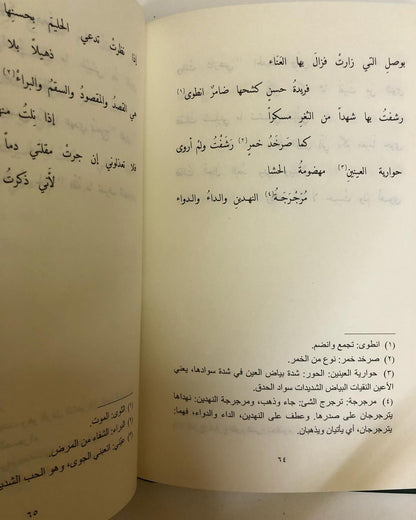 بوصلِ التي زارتْ فزالَ بها العَناء
فريدةُ حسنٍ كشحها ضامرُ انطوى(١)
رشفتُ بها شهداً من الثغرِ مسكراً
كما صَرخَد خمرٍ(٢) رَشَفْتُ ولم أروى
حوارية العينينِ(٣) مهضومةُ الحشا
مُرَجرَجَةُ(٤) النهدين والداءُ والدواء
(١) انطوى: تجمع وانضم.
(٢) صرخد خمر: نوع من الخمر.
(٣) حوارية العينين: الحور: شدة بياض العين في شدة سوادها، يعني
الأعين النقيات البياض الشديدات سواد الحدق.
(٤) مرجرجة: ترجرج الشئ: جاء وذهب، ومرجرجة النهدين: نهداها
يترجرجان على صدرها. وعطف على النهدين، الداء والدواء، فهما:
يترجرجان، أي يأتيان ويذهبان.
٦٤
إذا نظرتْ تدعي الحليمَ بحسنها
ذهيلاً بلا
هي القصدُ والمقصودُ والسقمُ والبراءُ(٢)
إذا نِلتُ منه
فلا تعذلوني إن جرتْ مقلتي دماً
لأنّي ذكرتُ
(١) الثوى: الموت.
(٢) البراء: الشفاء من المرض.
وهو الحب الشديد
٦٥